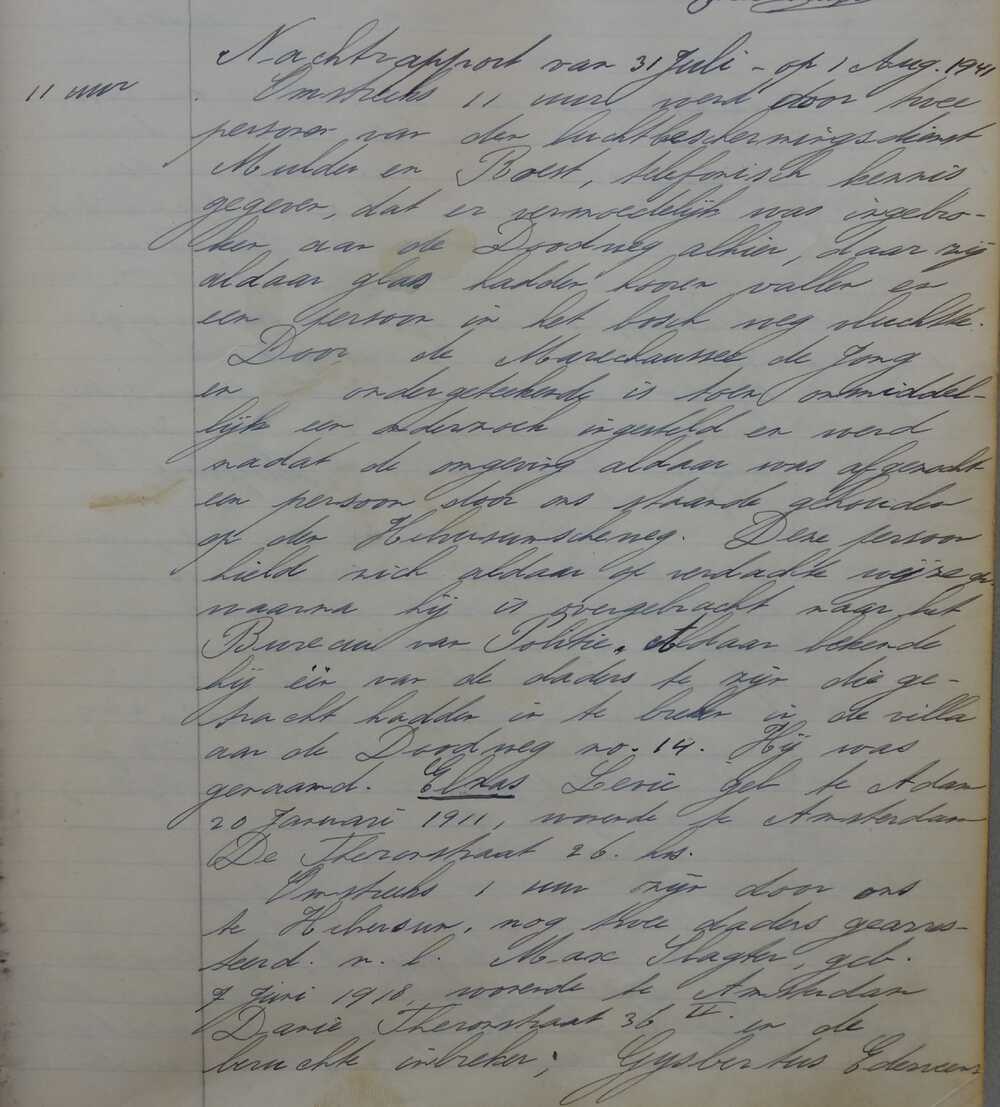 Nachtrapport van 31 Juli - op 1 Aug. 1941
11 uur
Omstreeks 11 uur werd door twee
personen van den luchtbeschermingsdienst
Mulder en Roest, telefonisch kennis
gegeven, dat er vermoedelijk was ingebro-
ken aan de Doodweg alhier, daar zij
aldaar glas hadden hooren vallen en
een persoon in het bosch weg vluchtte.
Door de Marechaussee de Jong
en ondergeteekende is toen onmiddel-
lijk een onderzoek ingesteld en werd
nadat de omgeving aldaar was afgezocht
een persoon door ons staande gehouden
op den Hilversumscheweg. Deze persoon
hield zich aldaar op verdachte wijze op.
waarna hij is overgebracht naar het
Bureau van Politie. Aldaar bekende
hij één van de daders te zijn die ge-
tracht hadden in te breken in de villa
aan de Doodweg no. 14. Hij was
genaamd. Elzas Levie geb te Adam
20 Januari 1911, wonende te Amsterdam
De Theronstraat 26. hs.
Omstreeks 1 uur zijn door ons
te Hilversum, nog twee daders gearres-
teerd. n. l. Max Slagter, geb.
7 Juni 1918, wonende te Amsterdam
Danie Theronstraat 36 II en de
beruchte inbreker; Gysbertus